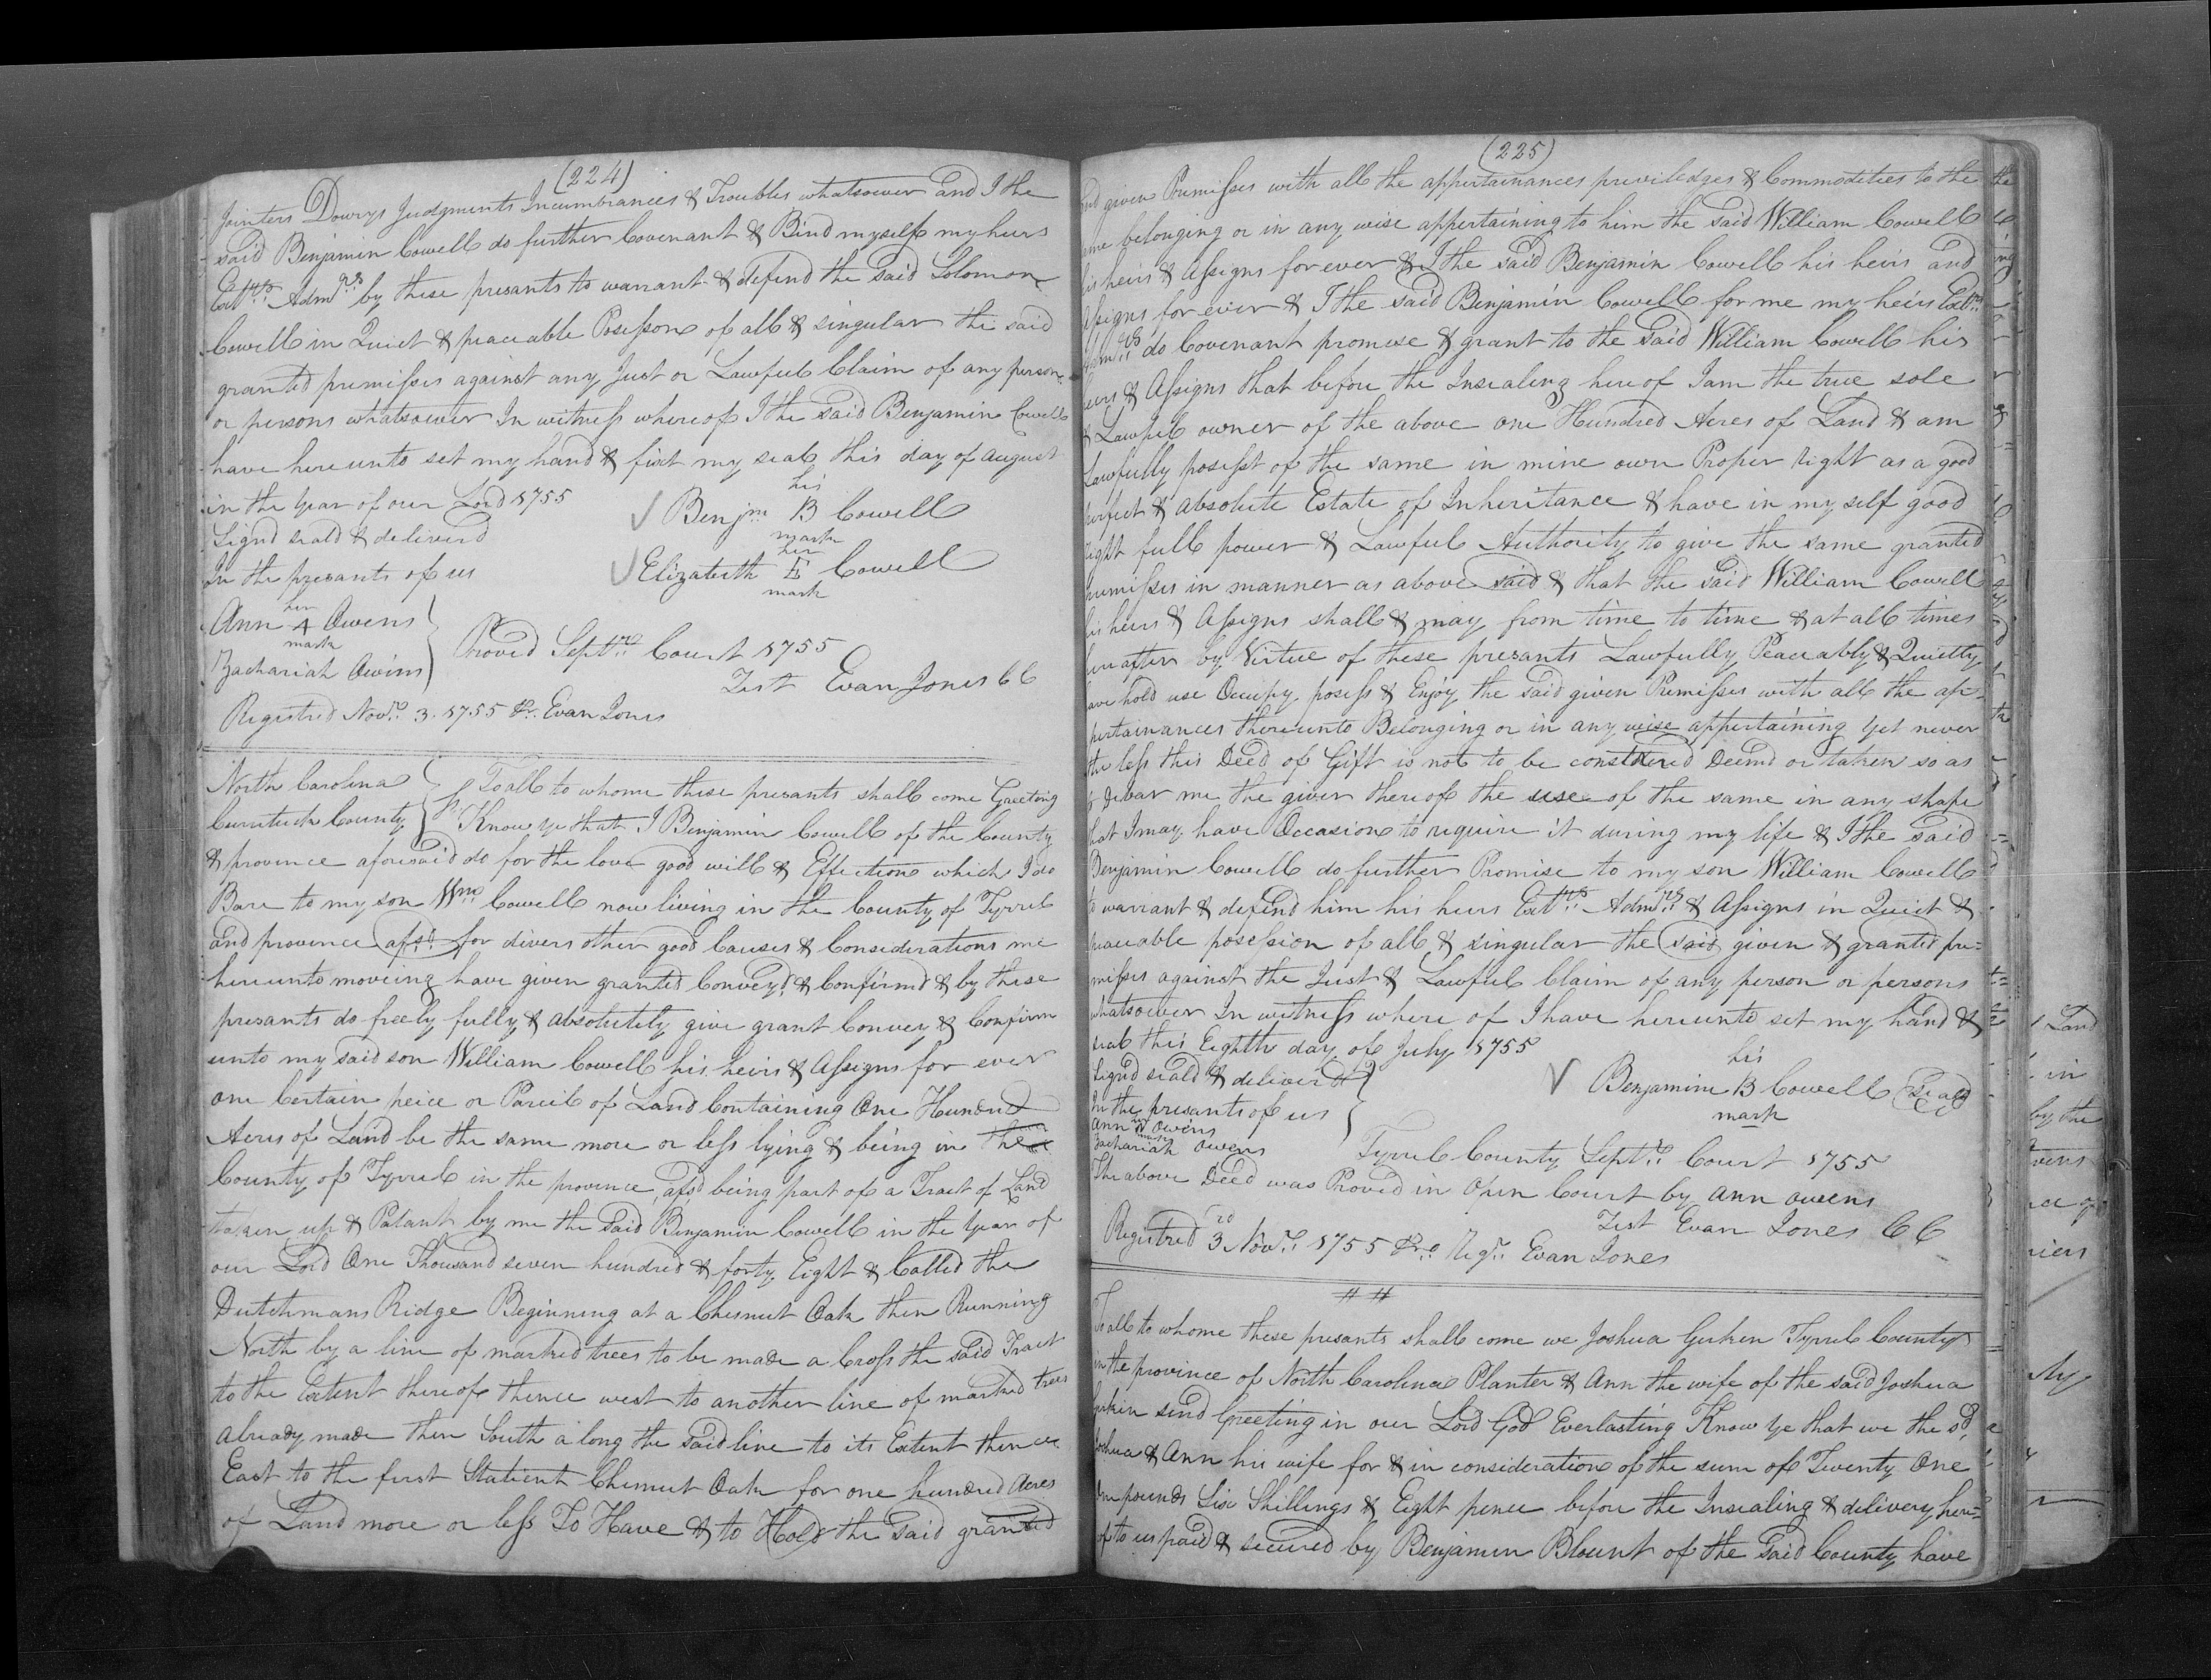 (224)
Jointers Dowrys Judgments Incumbrances & Troubles whatsoever and I the
said Benjamin Cowell do further Covenant & Bind myself my heirs
Extrs Admrs by these presants to warrant & defend the said Solomon
Cowell in Quiet & peaceable Posession of all & singular the said
granted premisses against any Just or Lawful Claim of any person
or persons whatsoever In witness whereof I the said Benjamin Cowell
have hereunto set my hand & fixt my seal this day of August
in the year of our Lord 1755
Signd seald & deliverd
In the presants of us
his
Benjm B Cowell
mark
her
Elizabeth E Cowell
mark
her
Ann A Owens
mark
Zachariah Owins
Proved Septr Court 1755
Test Evan Jones CC
Registred Novr 3. 1755 Pr Evan Jones
North Carolina
Currituck County
To all to whome these presants shall come Greeting
Know ye that I Benjamin Cowell of the County
& province aforesaid do for the love good will & Effection which I do
Bare to my son Wm Cowell now living in the County of Tyrrel
and province afsd for divers other good Causes & Considerations me
hereunto moveing have given granted Conveyd & Confirmd & by these
presants do freely fully & absolutely give grant Convey & Confirm
unto my said son William Cowell his heirs & Assigns for ever
one Certain peice or Parcel of Land Containing One Hundred
Acres of Land be the same more or less lying & being in the
County of Tyrrel in the province afsd being part of a Tract of Land
taken up & Patant by me the said Benjamin Cowell in the year of
our Lord One Thousand seven hundred & forty Eight & Called the
Dutchmans Ridge Beginning at a Chesnut Oak then Running
North by a line of marked trees to be made a Cross the said Tract
to the Extent thereof thence west to another line of marked trees
already made then South a long the said line to its Extent thence
East to the first Statient Chesnut Oak for one hundred Acres
of Land more or less To Have & to Hold the said granted
(225)
and given Premisses with all the appertainances priviledges & Commodities to the
same belonging or in any wise appertaining to him the said William Cowell
his heirs & Assigns for ever & I the said Benjamin Cowell his heirs and
Assigns for ever & I the said Benjamin Cowell for me my heirs Extrs
Admrs do Covenant promise & grant to the said William Cowell his
heirs & Assigns that before the Insealing hereof I am the true sole
& Lawful owner of the above one Hundred Acres of Land & am
Lawfully posesst of the same in mine own Proper right as a good
perfect & absolute Estate of Inheritance & have in my self good
right full power & Lawful Authority to give the same granted
premisses in manner as above said & that the said William Cowell
his heirs & Assigns shall & may from time to time & at all times
hereafter by Virtue of these presants Lawfully Peaceably & Quietly
have hold use Occupy posess & Enjoy the said given Premisses with all the ap-
pertainances thereunto Belonging or in any wise appertaining yet never
the less this Deed of Gift is not to be constured Deemd or taken so as
to Debar me the giver thereof the use of the same in any shape
that I may have Occasion to require it during my life & I the said
Benjamin Cowell do further Promise to my son William Cowell
to warrant & defend him his heirs Extrs Admrs & Assigns in Quiet &
peaceable posession of all & singular the said given & granted pre=
misses against the Just & Lawful Claim of any person or persons
whatsoever In witness where of I have hereunto set my hand &
seal this Eighth day of July 1755
Signd seald & deliverd
In the presants of us
Ann Owens
mark
Zachariah Owens
his
Benjamin B Cowell Seal
mark
Tyrrel County Septr Court 1755
The above Deed was Proved in Open Court by Ann Owens
Test Evan Jones CC
Registred 3rd Novr 1755 Pr Regr Evan Jones
To all to whome these presants shall come we Joshua Gerken Tyrrel County
in the province of North Carolina Planter & Ann the wife of the said Joshua
Gerkin send Greeting in our Lord God Everlasting Know ye that we the sd
Joshua & Ann his wife for & in consideration of the sum of Twenty One
pounds Six Shillings & Eight pence before the Insealing & delivery here=
of to us paid & secured by Benjamin Blount of the said County have